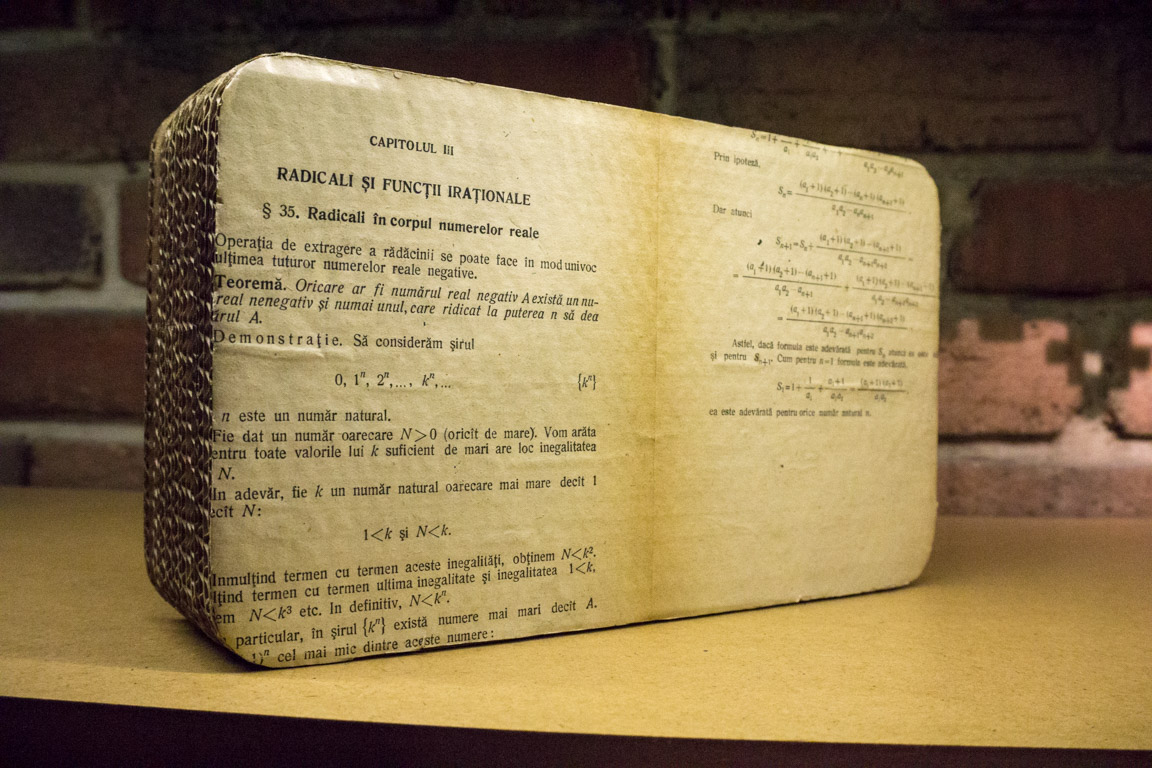 CAPITOLUL III
RADICALI ȘI FUNCȚII IRAȚIONALE
§ 35. Radicali în corpul numerelor reale
Operația de extragere a rădăcinii se poate face în mod univoc
ulțimea tuturor numerelor reale negative.
Teoremă. Oricare ar fi numărul real negativ A există un nu-
real nenegativ și numai unul, care ridicat la puterea n să dea
ărul A.
Demonstrație. Să considerăm șirul
0, 1ⁿ, 2ⁿ,..., kⁿ,... {kⁿ}
n este un număr natural.
Fie dat un număr oarecare N>0 (oricît de mare). Vom arăta
entru toate valorile lui k suficient de mari are loc inegalitatea
N.
In adevăr, fie k un număr natural oarecare mai mare decît 1
ecît N:
1<k și N<k.
Inmulțind termen cu termen aceste inegalități, obținem N<k².
lțind termen cu termen ultima inegalitate și inegalitatea 1<k,
em N<k³ etc. In definitiv, N<kⁿ.
particular, în șirul {kⁿ} există numere mai mari decît A.
1)ⁿ cel mai mic dintre aceste numere:
Prin ipoteză,
Dar atunci
Astfel, dacă formula este adevărată pentru Sₙ
și pentru Sₙ₊₁. Cum pentru n=1 formula este adevărată,
ea este adevărată pentru orice număr natural n.